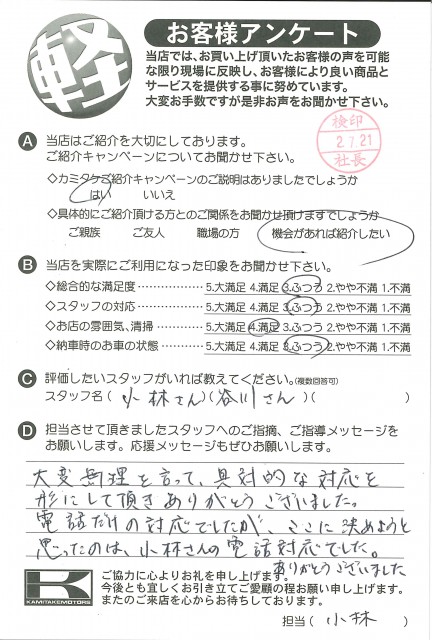 軽
お客様アンケート
当店では、お買い上げ頂いたお客様の声を可能
な限り現場に反映し、お客様により良い商品と
サービスを提供する事に努めています。
大変お手数ですが是非お声をお聞かせ下さい。
検印
2.7.21
社長
A 当店はご紹介を大切にしております。
ご紹介キャンペーンについてお聞かせ下さい。
◇カミタケご紹介キャンペーンのご説明はありましたでしょうか
はい いいえ
◇具体的にご紹介頂ける方とのご関係をお聞かせ頂けますでしょうか
ご親族 ご友人 職場の方 機会があれば紹介したい
B 当店を実際にご利用になった印象をお聞かせ下さい。
◇総合的な満足度…………………5.大満足 4.満足 3.ふつう 2.やや不満 1.不満
◇スタッフの対応…………………5.大満足 4.満足 3.ふつう 2.やや不満 1.不満
◇お店の雰囲気、清掃……………5.大満足 4.満足 3.ふつう 2.やや不満 1.不満
◇納車時のお車の状態……………5.大満足 4.満足 3.ふつう 2.やや不満 1.不満
C 評価したいスタッフがいれば教えてください。(複数回答可)
スタッフ名(小林さん)(谷川さん)( )
D 担当させて頂きましたスタッフへのご指摘、ご指導メッセージを
お願いします。応援メッセージもぜひお願いします。
大変無理を言って、具対的な対応を
形にして頂きありがとうございました。
電話だけの対応でしたが、ここに決めようと
思ったのは、小林さんの電話対応でした。
ありがとうございました
K
KAMITAKEMOTORS
ご協力に心よりお礼を申し上げます。
今後とも宜しくお引き立てご愛顧の程お願い申し上げます。
またのご来店を心からお待ちしております。
担当(小林)